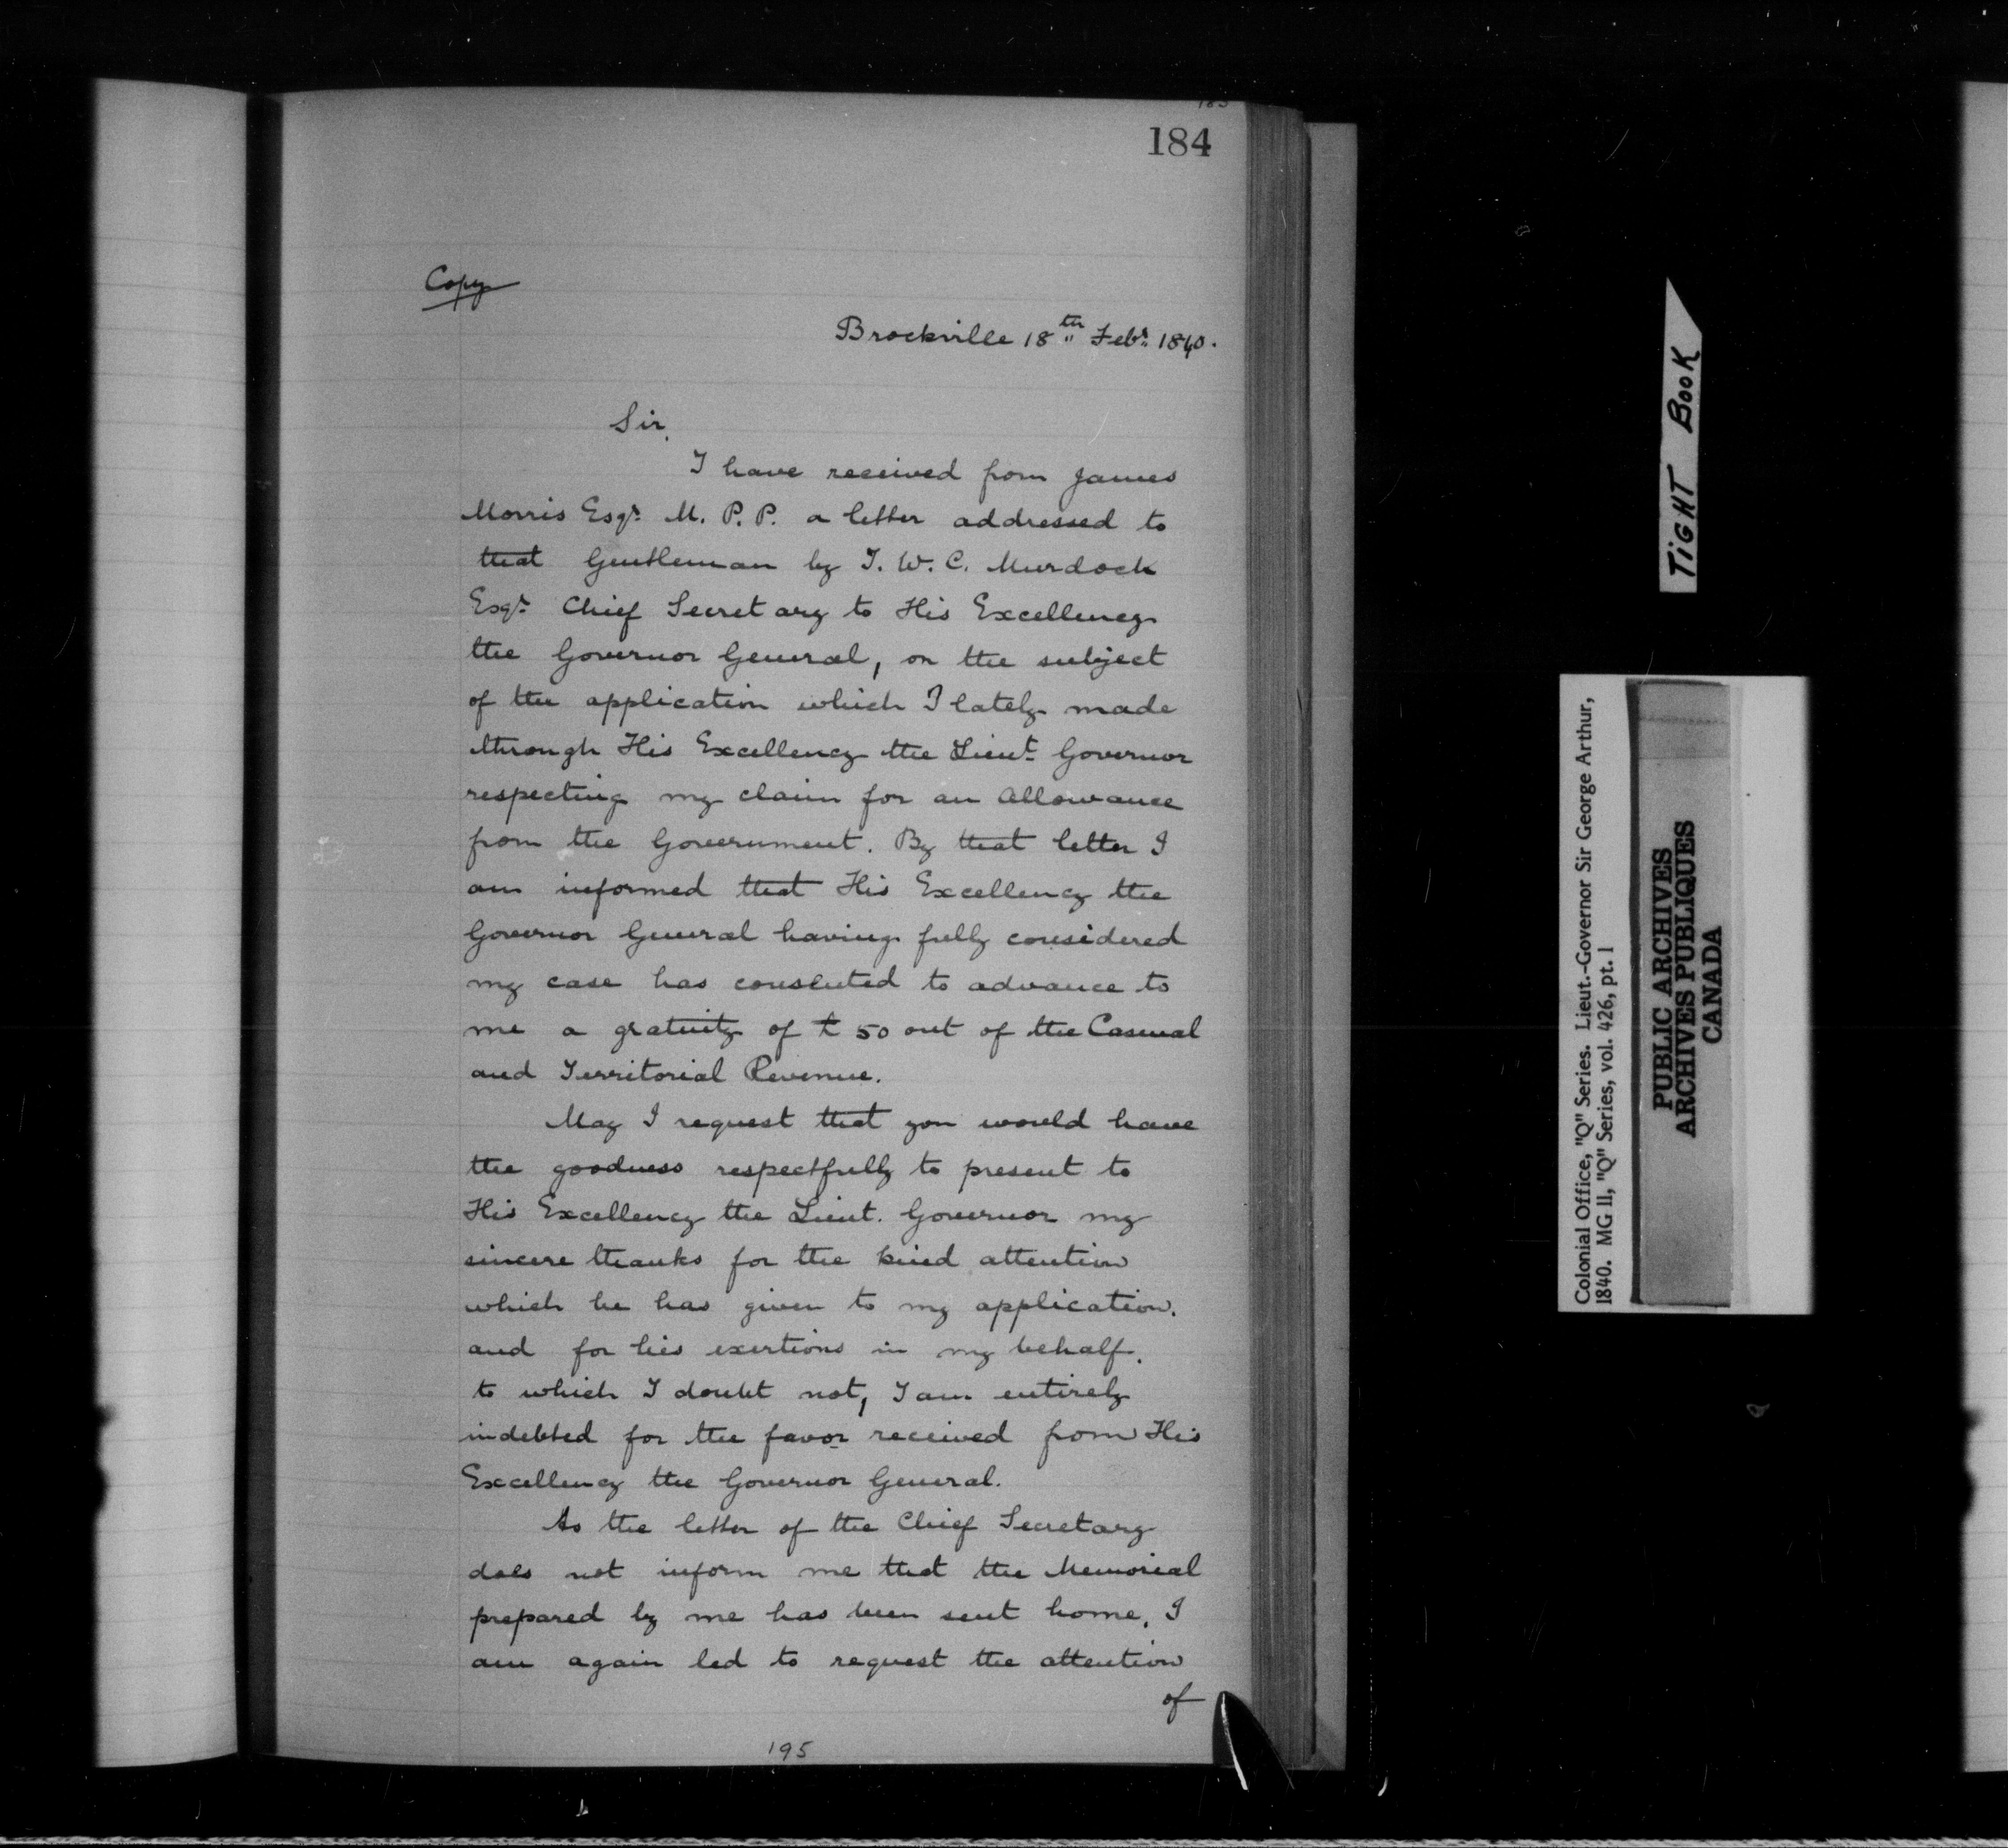 184
Copy
Brockville 18th Feby. 1840.
Sir,
I have received from James
Morris Esqr. M. P. P. a letter addressed to
that Gentleman by T. W. C. Murdock
Esqr. Chief Secretary to His Excellency
the Governor General, on the subject
of the application which I lately made
through His Excellency the Lieut. Governor
respecting my claim for an allowance
from the Government. By that letter I
am informed that His Excellency the
Governor General having fully considered
my case has consented to advance to
me a gratuity of £50 out of the Casual
and Territorial Revenue.
May I request that you would have
the goodness respectfully to present to
His Excellency the Lieut. Governor my
sincere thanks for the kind attention
which he has given to my application.
and for his exertions in my behalf.
to which I doubt not, I am entirely
indebted for the favor received from His
Excellency the Governor General.
As the letter of the Chief Secretary
does not inform me that the Memorial
prepared by me has been sent home, I
am again led to request the attention
of
195
TIGHT BOOK
Colonial Office, "Q" Series. Lieut.-Governor Sir George Arthur,
1840. MG 11, "Q" Series, vol. 426, pt. 1
PUBLIC ARCHIVES
ARCHIVES PUBLIQUES
CANADA